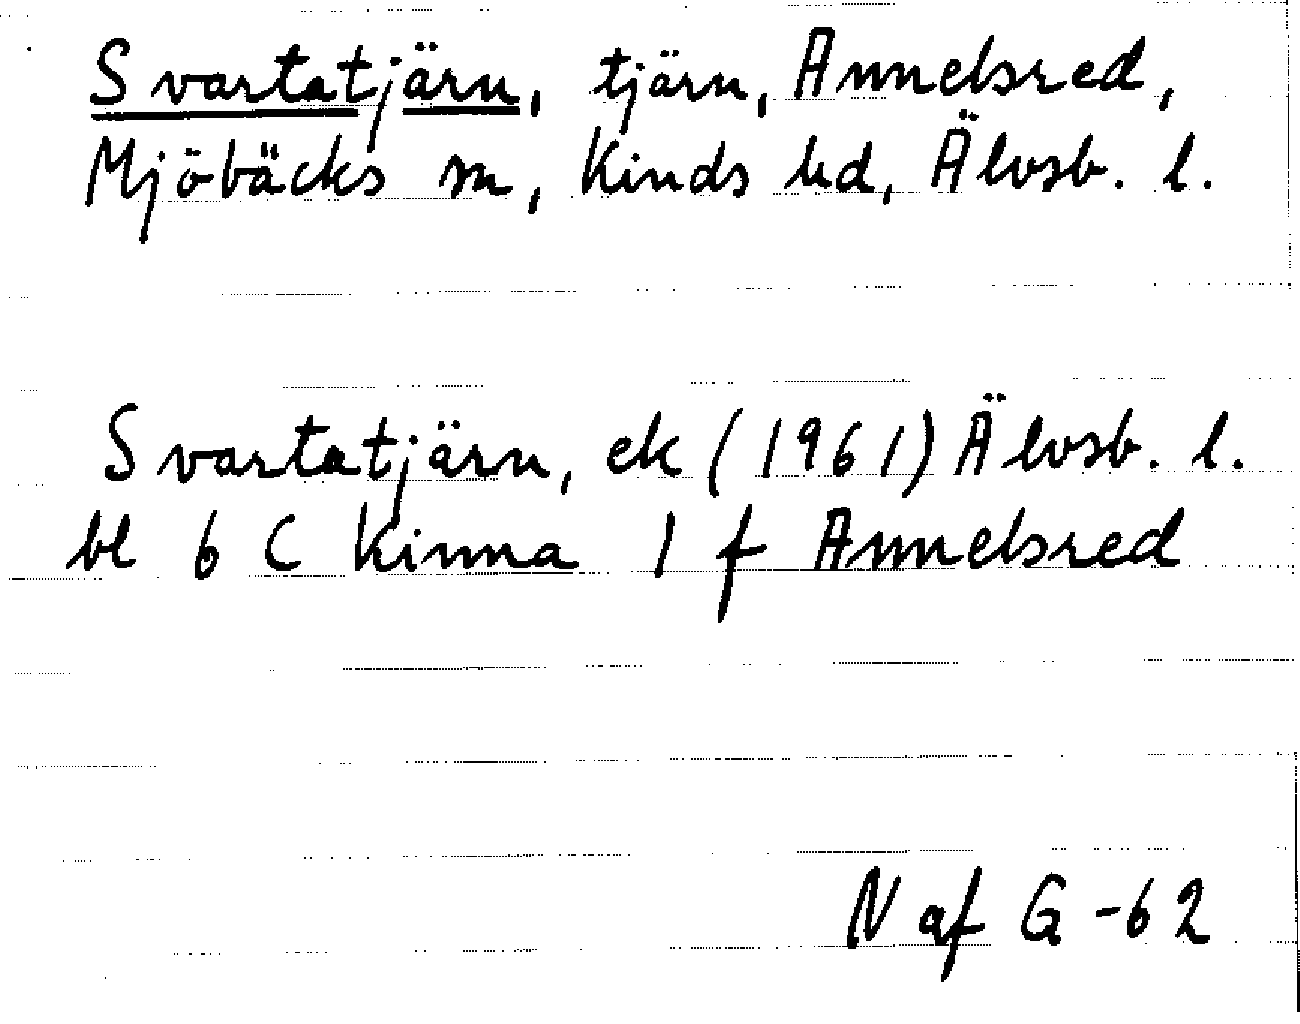 Svartatjärn, tjärn, Annelsred,
Mjöbäcks sn, Kinds hd, Älvsb. l.
Svartatjärn, ek (1961) Älvsb. l.
bl 6 C Kinna 1 f Annelsred
N af G -62